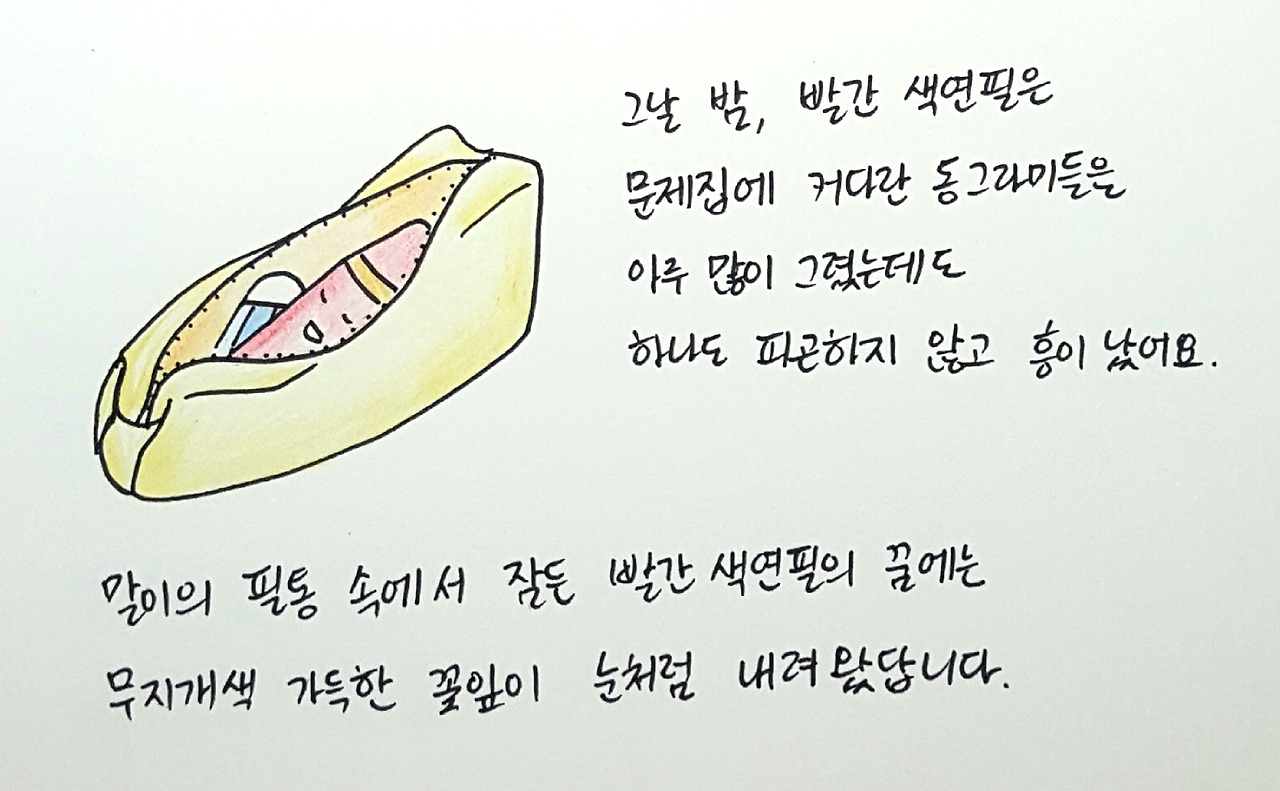 그날 밤, 빨간 색연필은
문제집에 커다란 동그라미들을
아주 많이 그렸는데도
하나도 피곤하지 않고 흥이 났어요.
말이의 필통 속에서 잠든 빨간 색연필의 꿈에는
무지개색 가득한 꽃잎이 눈처럼 내려왔답니다.